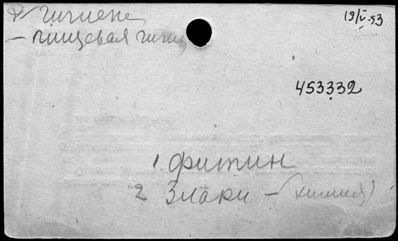 гигиене 19/V-53
- пищевая гиги
453332
1 фитин
2 Злаки - (химия)